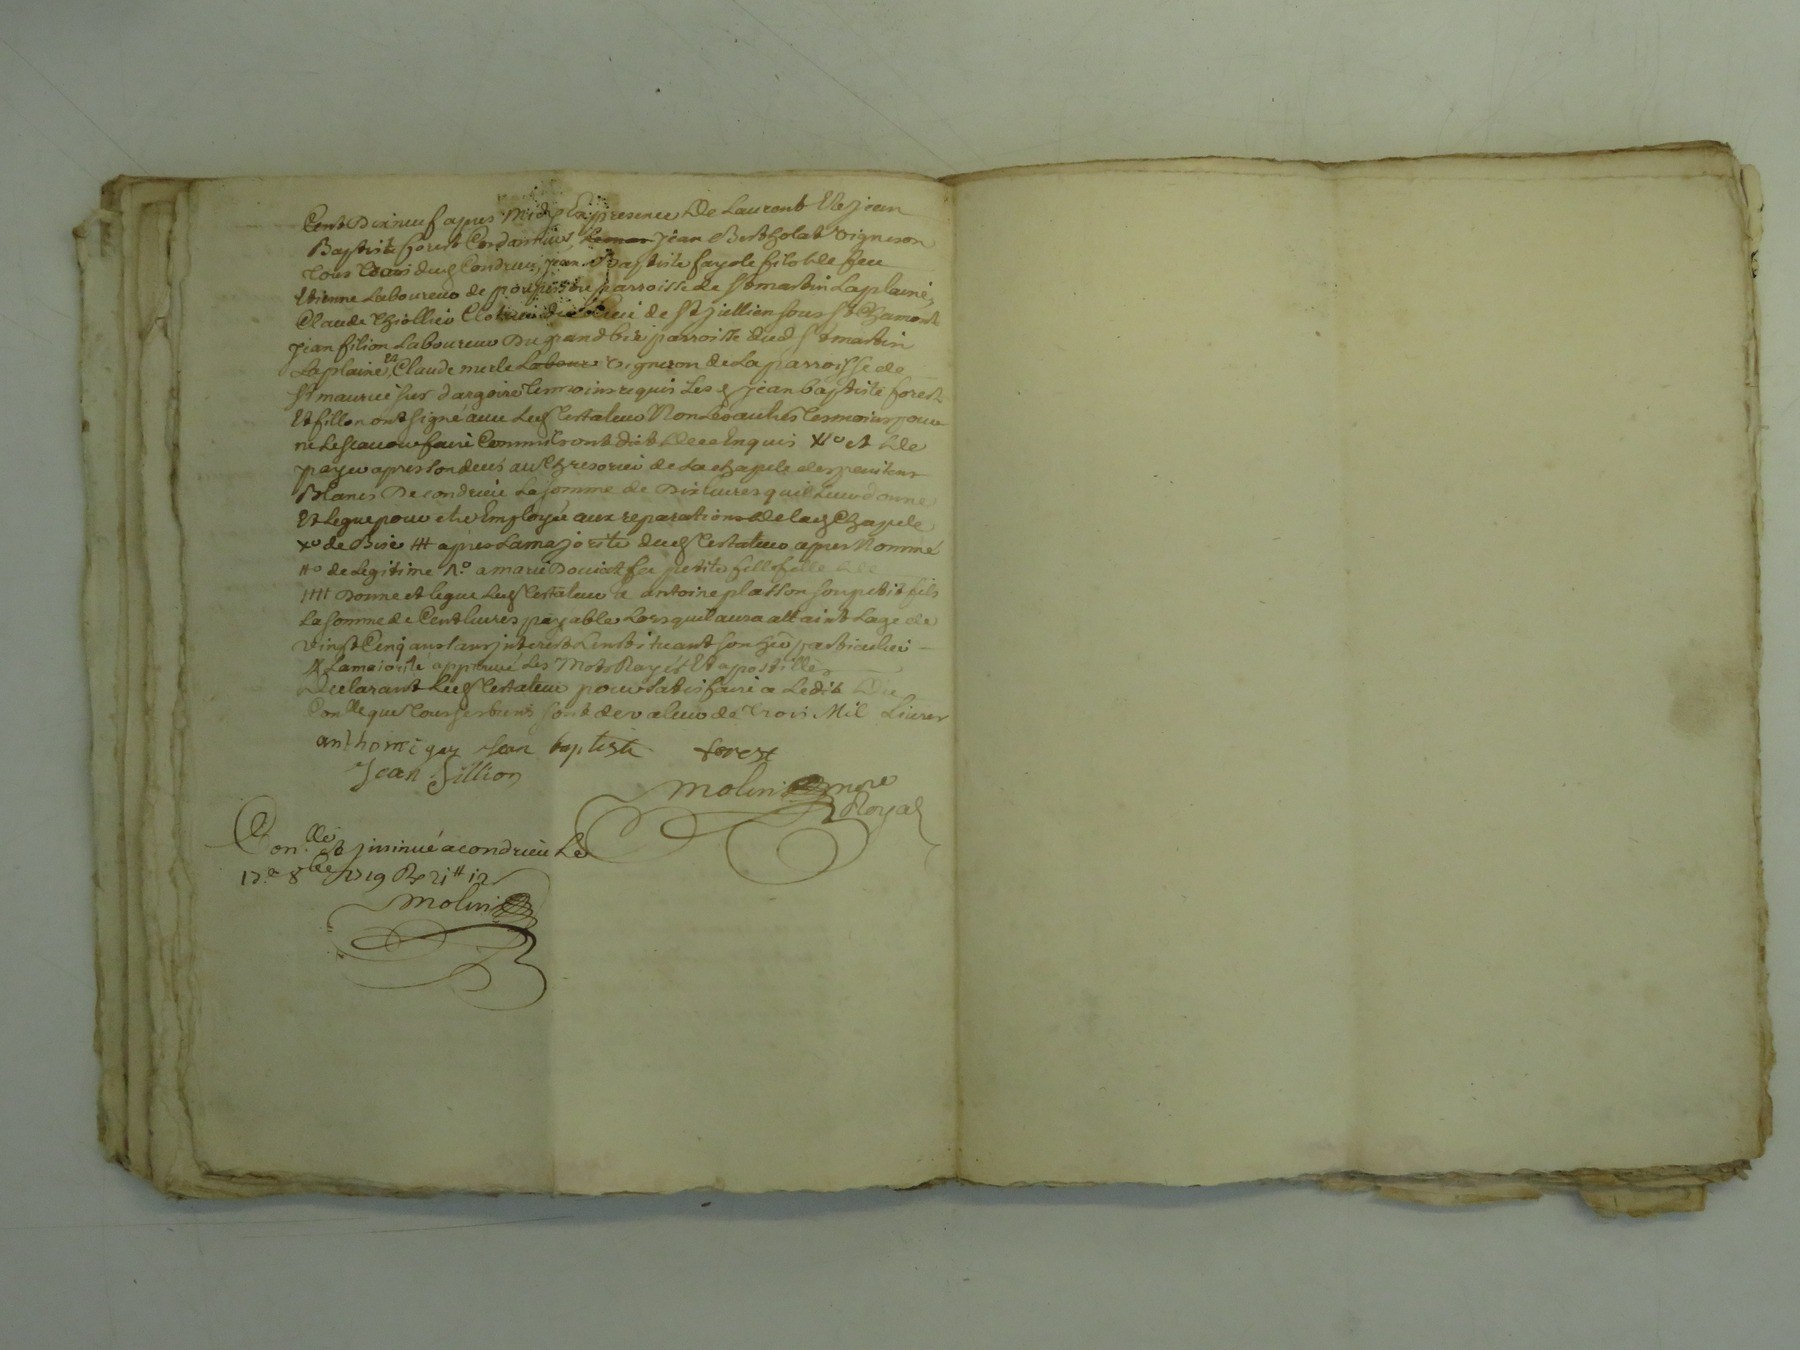 Cent Dix neuf apres Midy En presence De Laurent Et jean
Baptiste forest Cordonniers, jean Bertholat vigneron
tous dud Condrieu, jean Baptiste fayole fils de feu
Etienne Laboureur de parroisse de St martin Laplaine,
Claude thiollier Clotrier de St jullien sous St Chamont
jean fillion Laboureur Du grand parroisse dud St martin
Laplaine, Et Claude merle Laboure vigneron de La parroisse de
St maurice sur dargoire temoins requis Les d jean baptiste forest
Et fillon ont signé avec Led testateur Non Les autres tesmoins pour
ne Le scavoir faire Comme ils ont dict de ce Enquis Xo et de
payer apres son deces au thresorier de La chapele des penitens
Blancs De condrieu La somme de Dix livres quil Leur donne
Et Legue pour etre Employée aux reparations de lad Chapele
Xo de apres La majorité dud testateur apres Nommé
de Legitime a marie Douiat sa petite fille fille de
donne et legue Led testateur a antoine plasson son petit fils
La somme de Cent livres payables Lorsquil aura attaint Lage de
vingt Cinq ans sans interest Linstituant son her particulier
La majorité approuvé Les Mots Rayés Et apostilles
Declarant Led testateur pour satisfaire a Ledit Du
Conlle que tous ses biens sont de valeur de trois Mil Livres
anthoine gay jean baptiste forest
Jean fillion
Molin nore
Royal
Conllé et insinué a condrieu Le
17e 8bre 1719 R 21tt 12
Molin